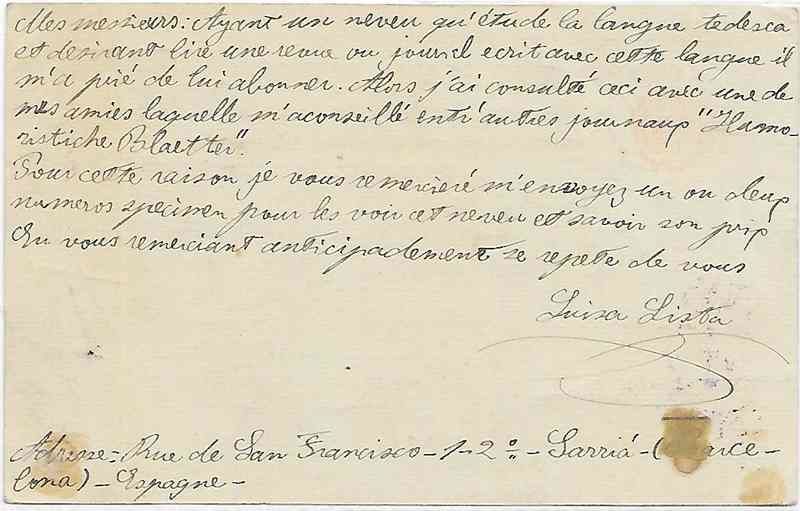 Mes messieurs: Ayant un neveu qu'étude la langue tedesca
et desirant lire une revue ou journal ecrit avec cette langue il
m'a prié de lui abonner. Alors j'ai consulté ceci avec une de
mes amies laquelle m'aconseillé entr'autres journaux "Humo-
ristiche Blaetter".
Pour cette raison je vous remercieré m'envoyez un ou deux
numeros specimen pour les voir cet neveu et savoir son prix
En vous remerciant anticipadement se repete de vous
Luisa Lista
Adresse= Rue de San Francisco - 1-2º - Sarriá - (Barce-
lona) - Espagne -